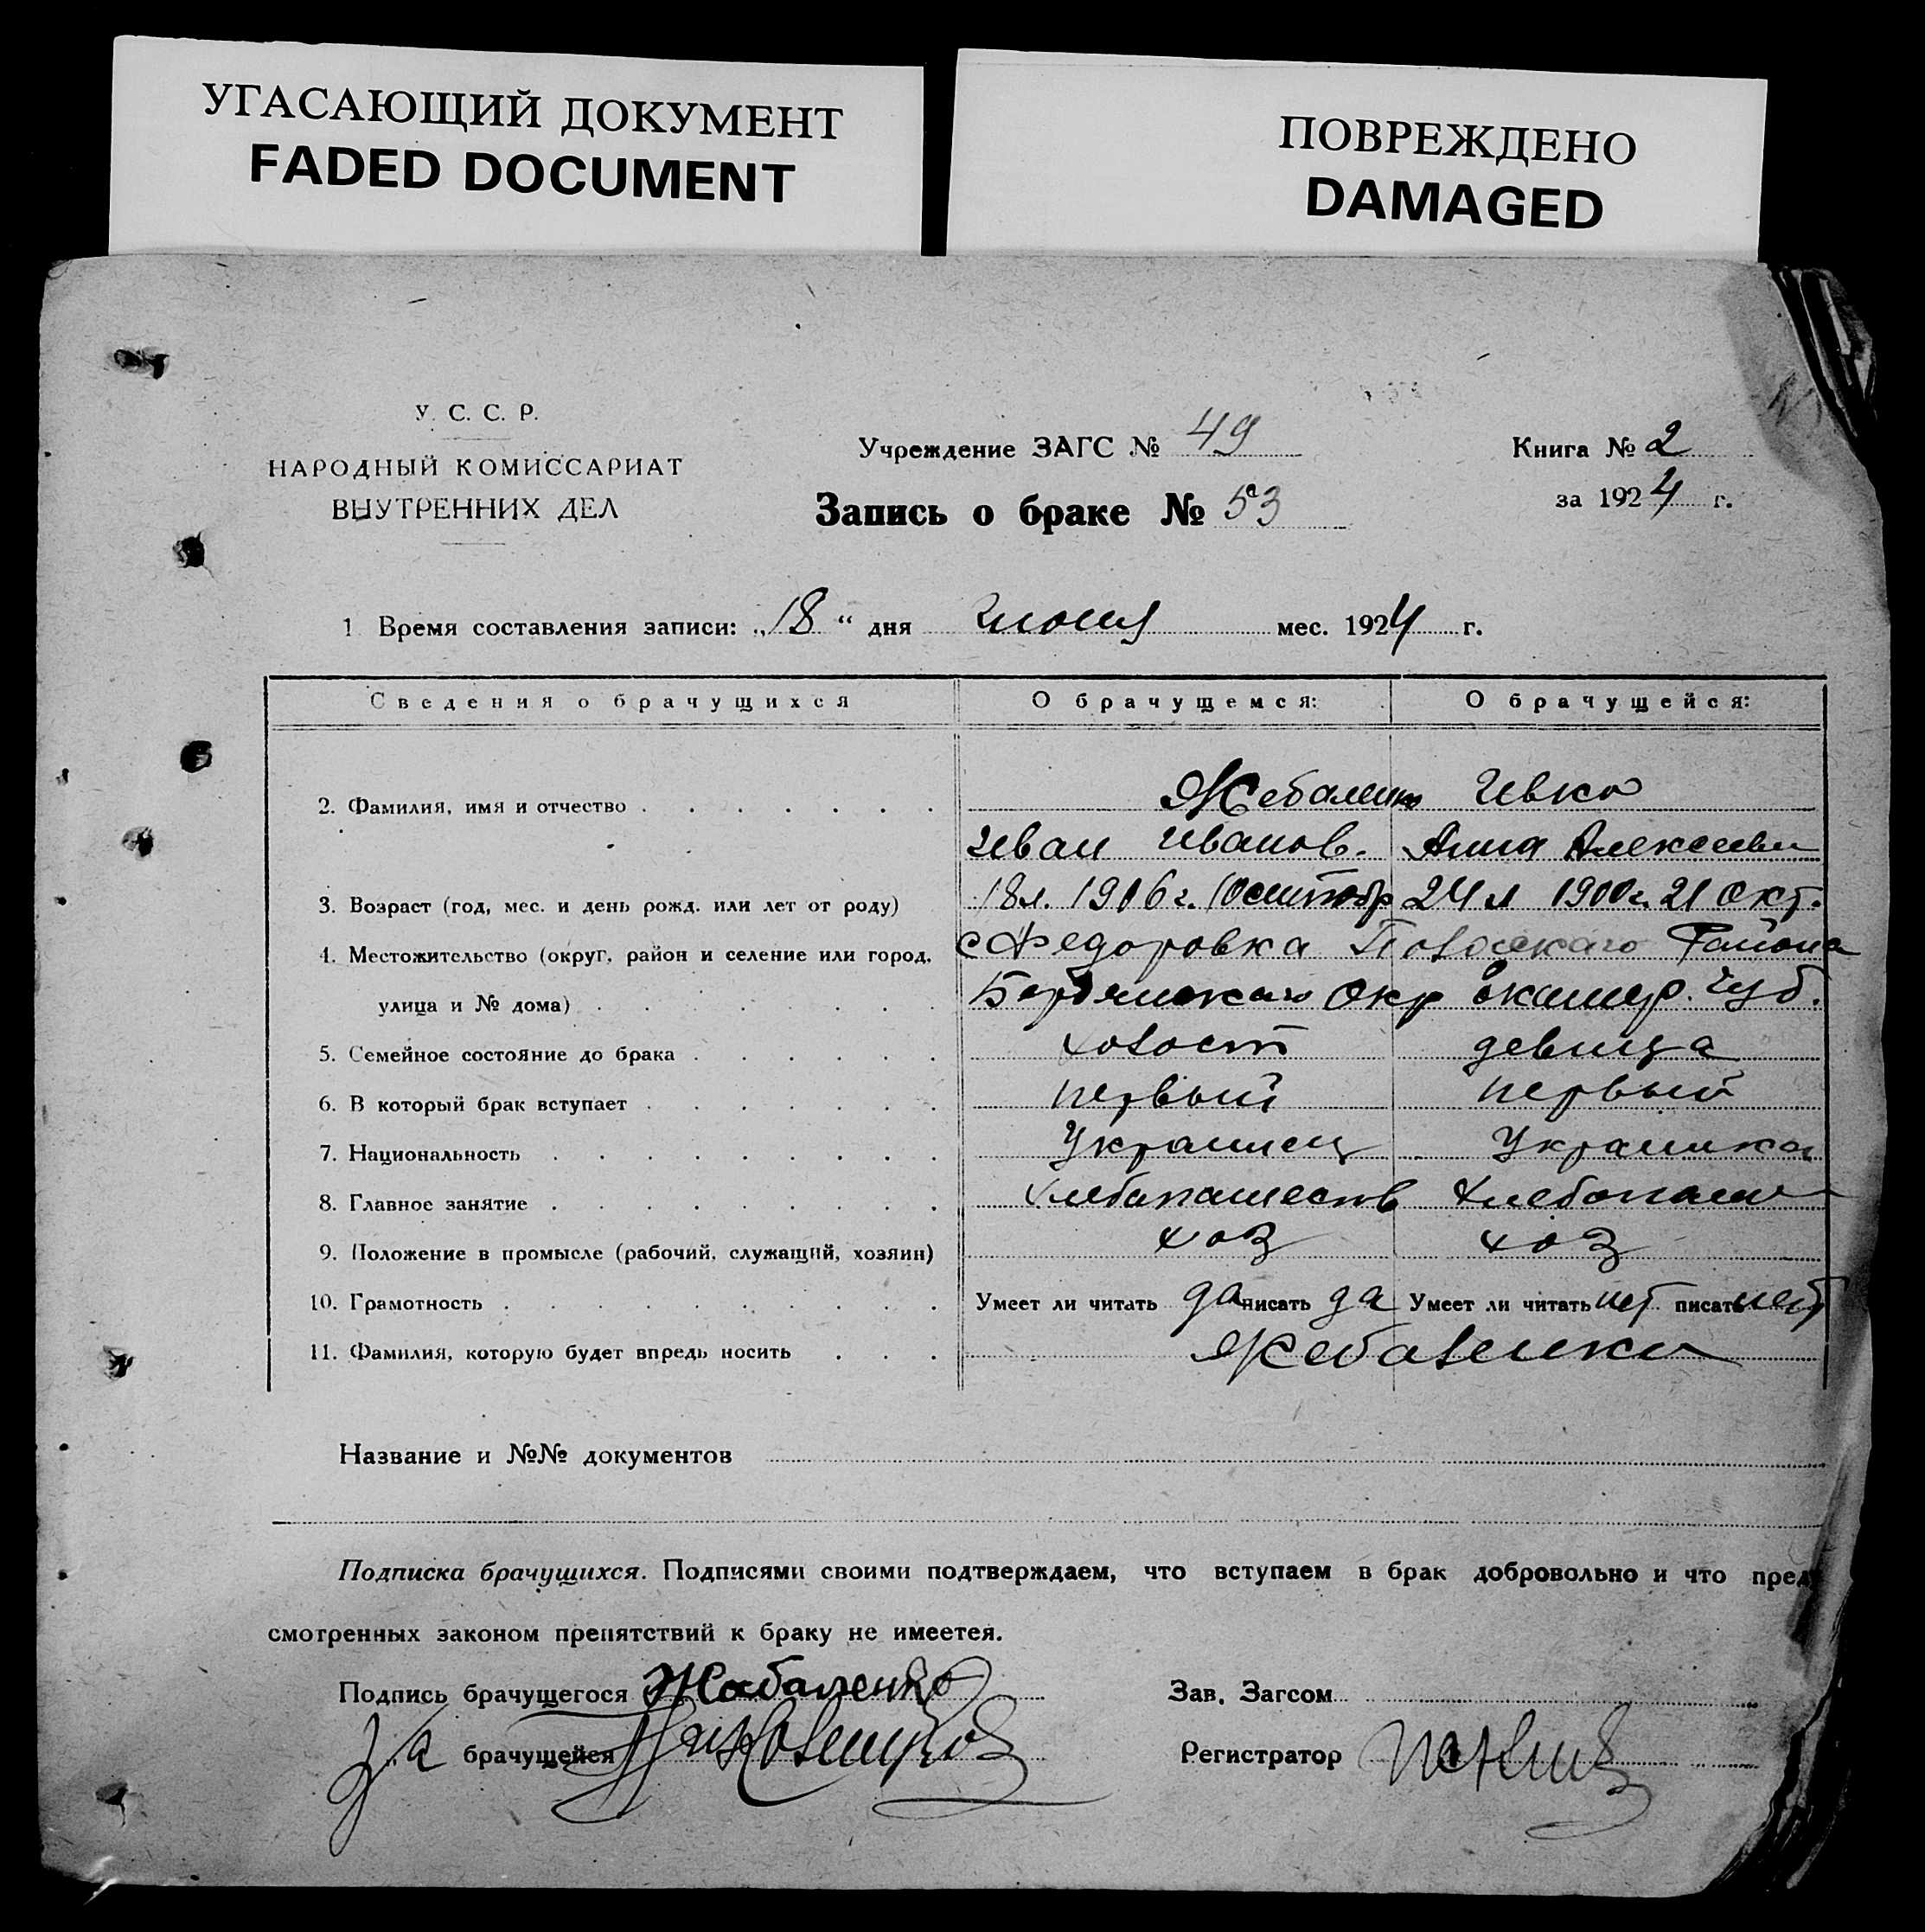 УГАСАЮЩИЙ ДОКУМЕНТ
FADED DOCUMENT
ПОВРЕЖДЕНО
DAMAGED
У. С. С. Р.
НАРОДНЫЙ КОМИССАРИАТ
ВНУТРЕННИХ ДЕЛ
Учреждение ЗАГС № 49
Запись о браке № 53
Книга № 2
за 1924 г.
1 Время составления записи: „18“ дня июня мес. 1924 г.
Сведения о брачущихся О брачущемся: О брачущейся:
2. Фамилия, имя и отчество Жебаленко Ивко
Иван Иванов. Анна Алексеевн
3. Возраст (год, мес. и день рожд. или лет от роду) 18 л. 1906 г. 24 л 1900 г. 21 Окт.
4. Местожительство (округ, район и селение или город, с Федоровка Района
улица и № дома) Бердянскаго Окр Екатер. Губ.
5. Семейное состояние до брака холост девица
6. В который брак вступает первый первый
7. Национальность Украинец Украинка
8. Главное занятие хлебопашеств хлебопаш
9. Положение в промысле (рабочий, служащий, хозяин) хоз хоз
10. Грамотность Умеет ли читать да писать да Умеет ли читать нет писать нет
11. Фамилия, которую будет впредь носить Жебаленко
Название и №№ документов
Подписка брачущихся. Подписями своими подтверждаем, что вступаем в брак добровольно и что пред
смотренных законом препятствий к браку не имеется.
Подпись брачущегося Жабаленко
Зав. Загсом
За брачущейся
Регистратор